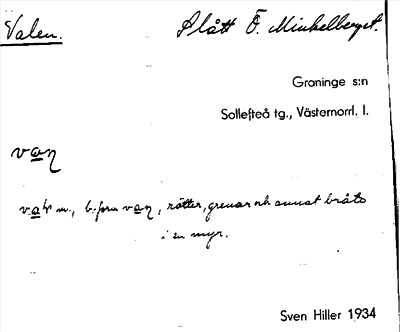 Valen. Slått Ö. Minkelberget.
Graninge s:n
Sollefteå tg., Västernorrl. l.
van
val m., b. form van, rötter, grenar och annat bråte
i en myr.
Sven Hiller 1934